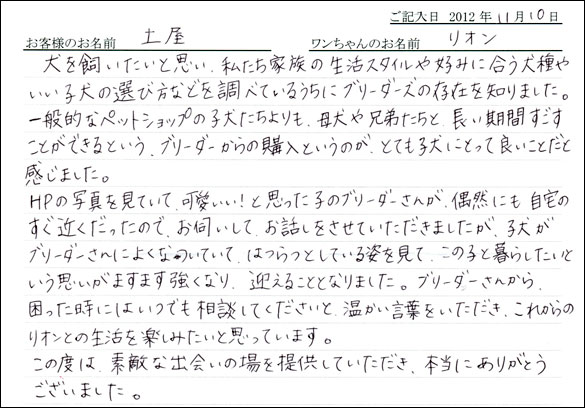 ご記入日 2012年11月10日
お客様のお名前 土屋 ワンちゃんのお名前 リオン
犬を飼いたいと思い、私たち家族の生活スタイルや好みに合う犬種や
いい子犬の選び方などを調べているうちにブリーダーズの存在を知りました。
一般的なペットショップの子犬たちよりも、母犬や兄弟たちと、長い期間すごす
ことができるという、ブリーダーからの購入というのが、とても子犬にとって良いことだと
感じました。
HPの写真を見ていて、可愛いい!と思った子のブリーダーさんが、偶然にも自宅の
すぐ近くだったので、お伺いして、お話しをさせていただきましたが、子犬が
ブリーダーさんによくなついていて、はつらつとしている姿を見て、この子と暮らしたいと
いう思いがますます強くなり、迎えることとなりました。ブリーダーさんから、
困った時にはいつでも相談してくださいと、温かい言葉をいただき、これからの
リオンとの生活を楽しみたいと思っています。
この度は、素敵な出会いの場を提供していただき、本当にありがとう
ございました。